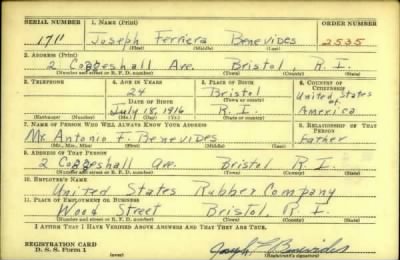 SERIAL NUMBER 1. NAME (Print) ORDER NUMBER
1711 Joseph Ferriera Benevides 2535
(First) (Middle) (Last)
2. ADDRESS (Print)
2 Coggeshall Ave. Bristol, R. I.
(Number and street or R. F. D. number) (Town) (County) (State)
3. TELEPHONE 4. AGE IN YEARS 5. PLACE OF BIRTH 6. COUNTRY OF CITIZENSHIP
24 Bristol United States of America
DATE OF BIRTH (Town or county)
July 18, 1916 R. I.
(Exchange) (Number) (Mo.) (Day) (Yr.) (State or country)
7. NAME OF PERSON WHO WILL ALWAYS KNOW YOUR ADDRESS 8. RELATIONSHIP OF THAT PERSON
Mr. Antonio F. Benevides Father
(Mr., Mrs., Miss) (First) (Middle) (Last)
9. ADDRESS OF THAT PERSON
2 Coggeshall Ave. Bristol R. I.
(Number and street or R. F. D. number) (Town) (County) (State)
10. EMPLOYER'S NAME
United States Rubber Company
11. PLACE OF EMPLOYMENT OR BUSINESS
Wood Street Bristol, R. I.
(Number and street or R. F. D. number) (Town) (County) (State)
I AFFIRM THAT I HAVE VERIFIED ABOVE ANSWERS AND THAT THEY ARE TRUE.
REGISTRATION CARD
D. S. S. Form 1 (over) Joseph F. Benevides
(Registrant's signature)